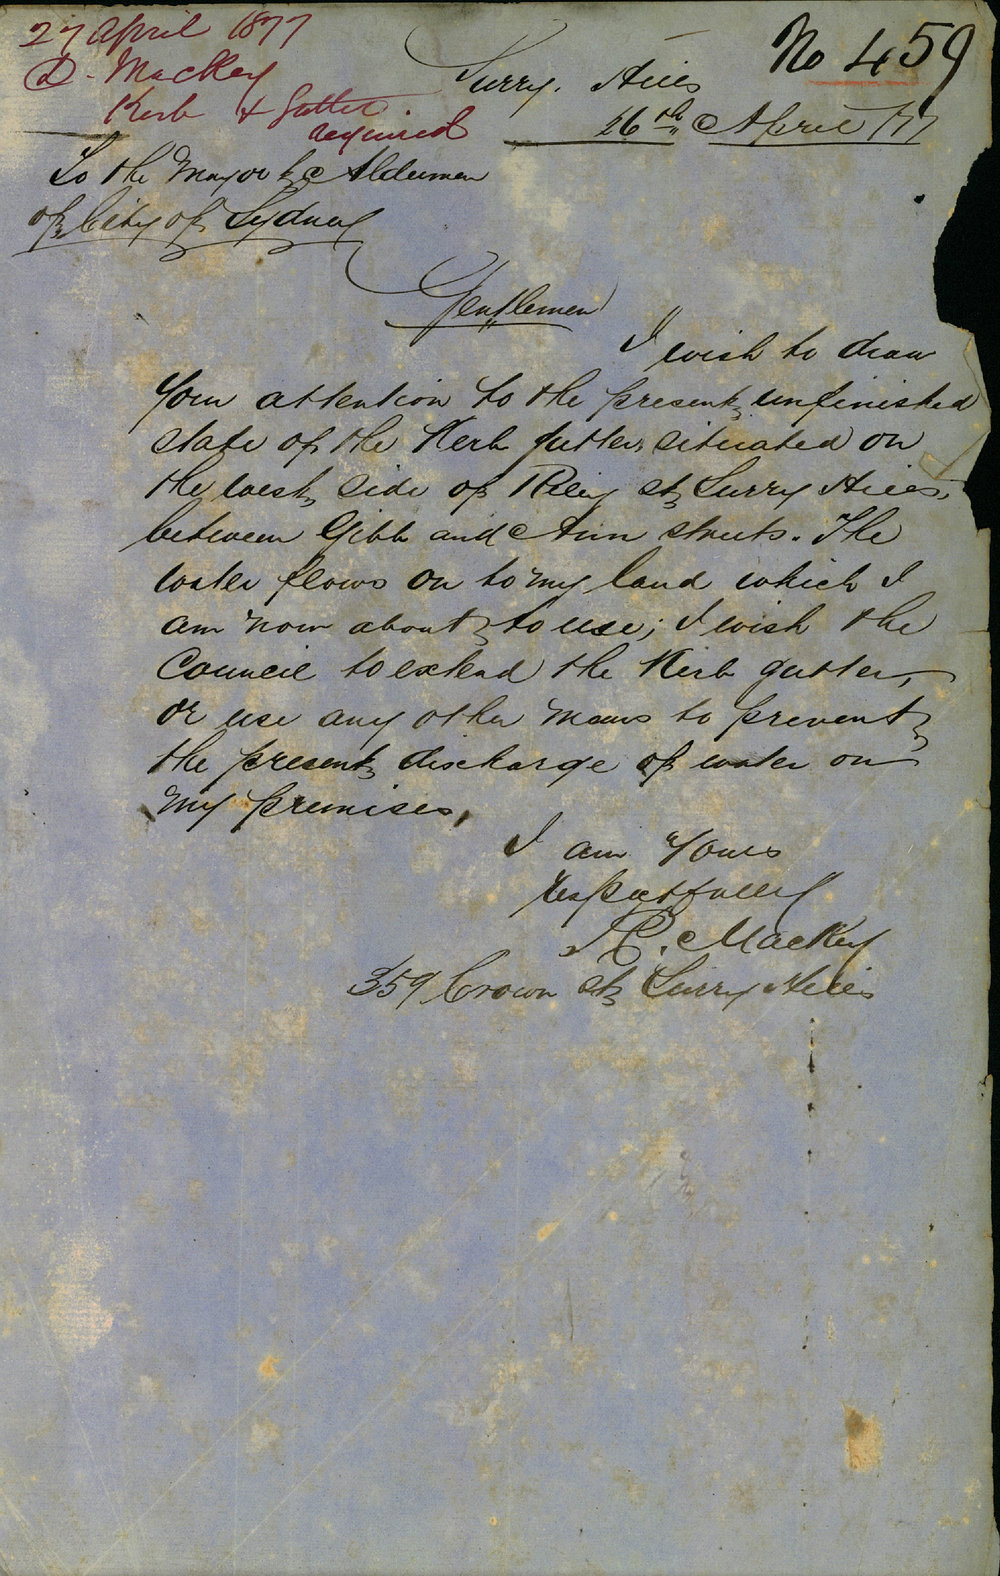 27 April 1877
D. Mackey
Kerb & Gutter
required
No 459
Surry Hills
26th April /77
To the Mayor & Aldermen
of City of Sydney
Gentlemen
I wish to draw
your attention to the present unfinished
state of the Kerb gutter situated on
the west side of Riley st Surry Hills,
between Gibb and Ann streets. The
water flows on to my land which I
am now about to use; I wish the
Council to extend the Kerb gutter,
or use any other means to prevent
the present discharge of water on
my premises,
I am Yours
respectfully
D. Mackey
359 Crown st Surry Hills